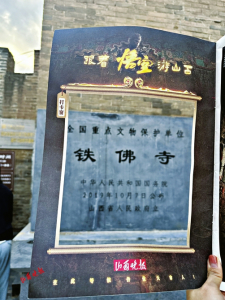 跟着悟空游山西
打卡第
全国重点文物保护单位
铁佛寺
中华人民共和国国务院
2019年10月7日公布
山西省人民政府立
山西晚报